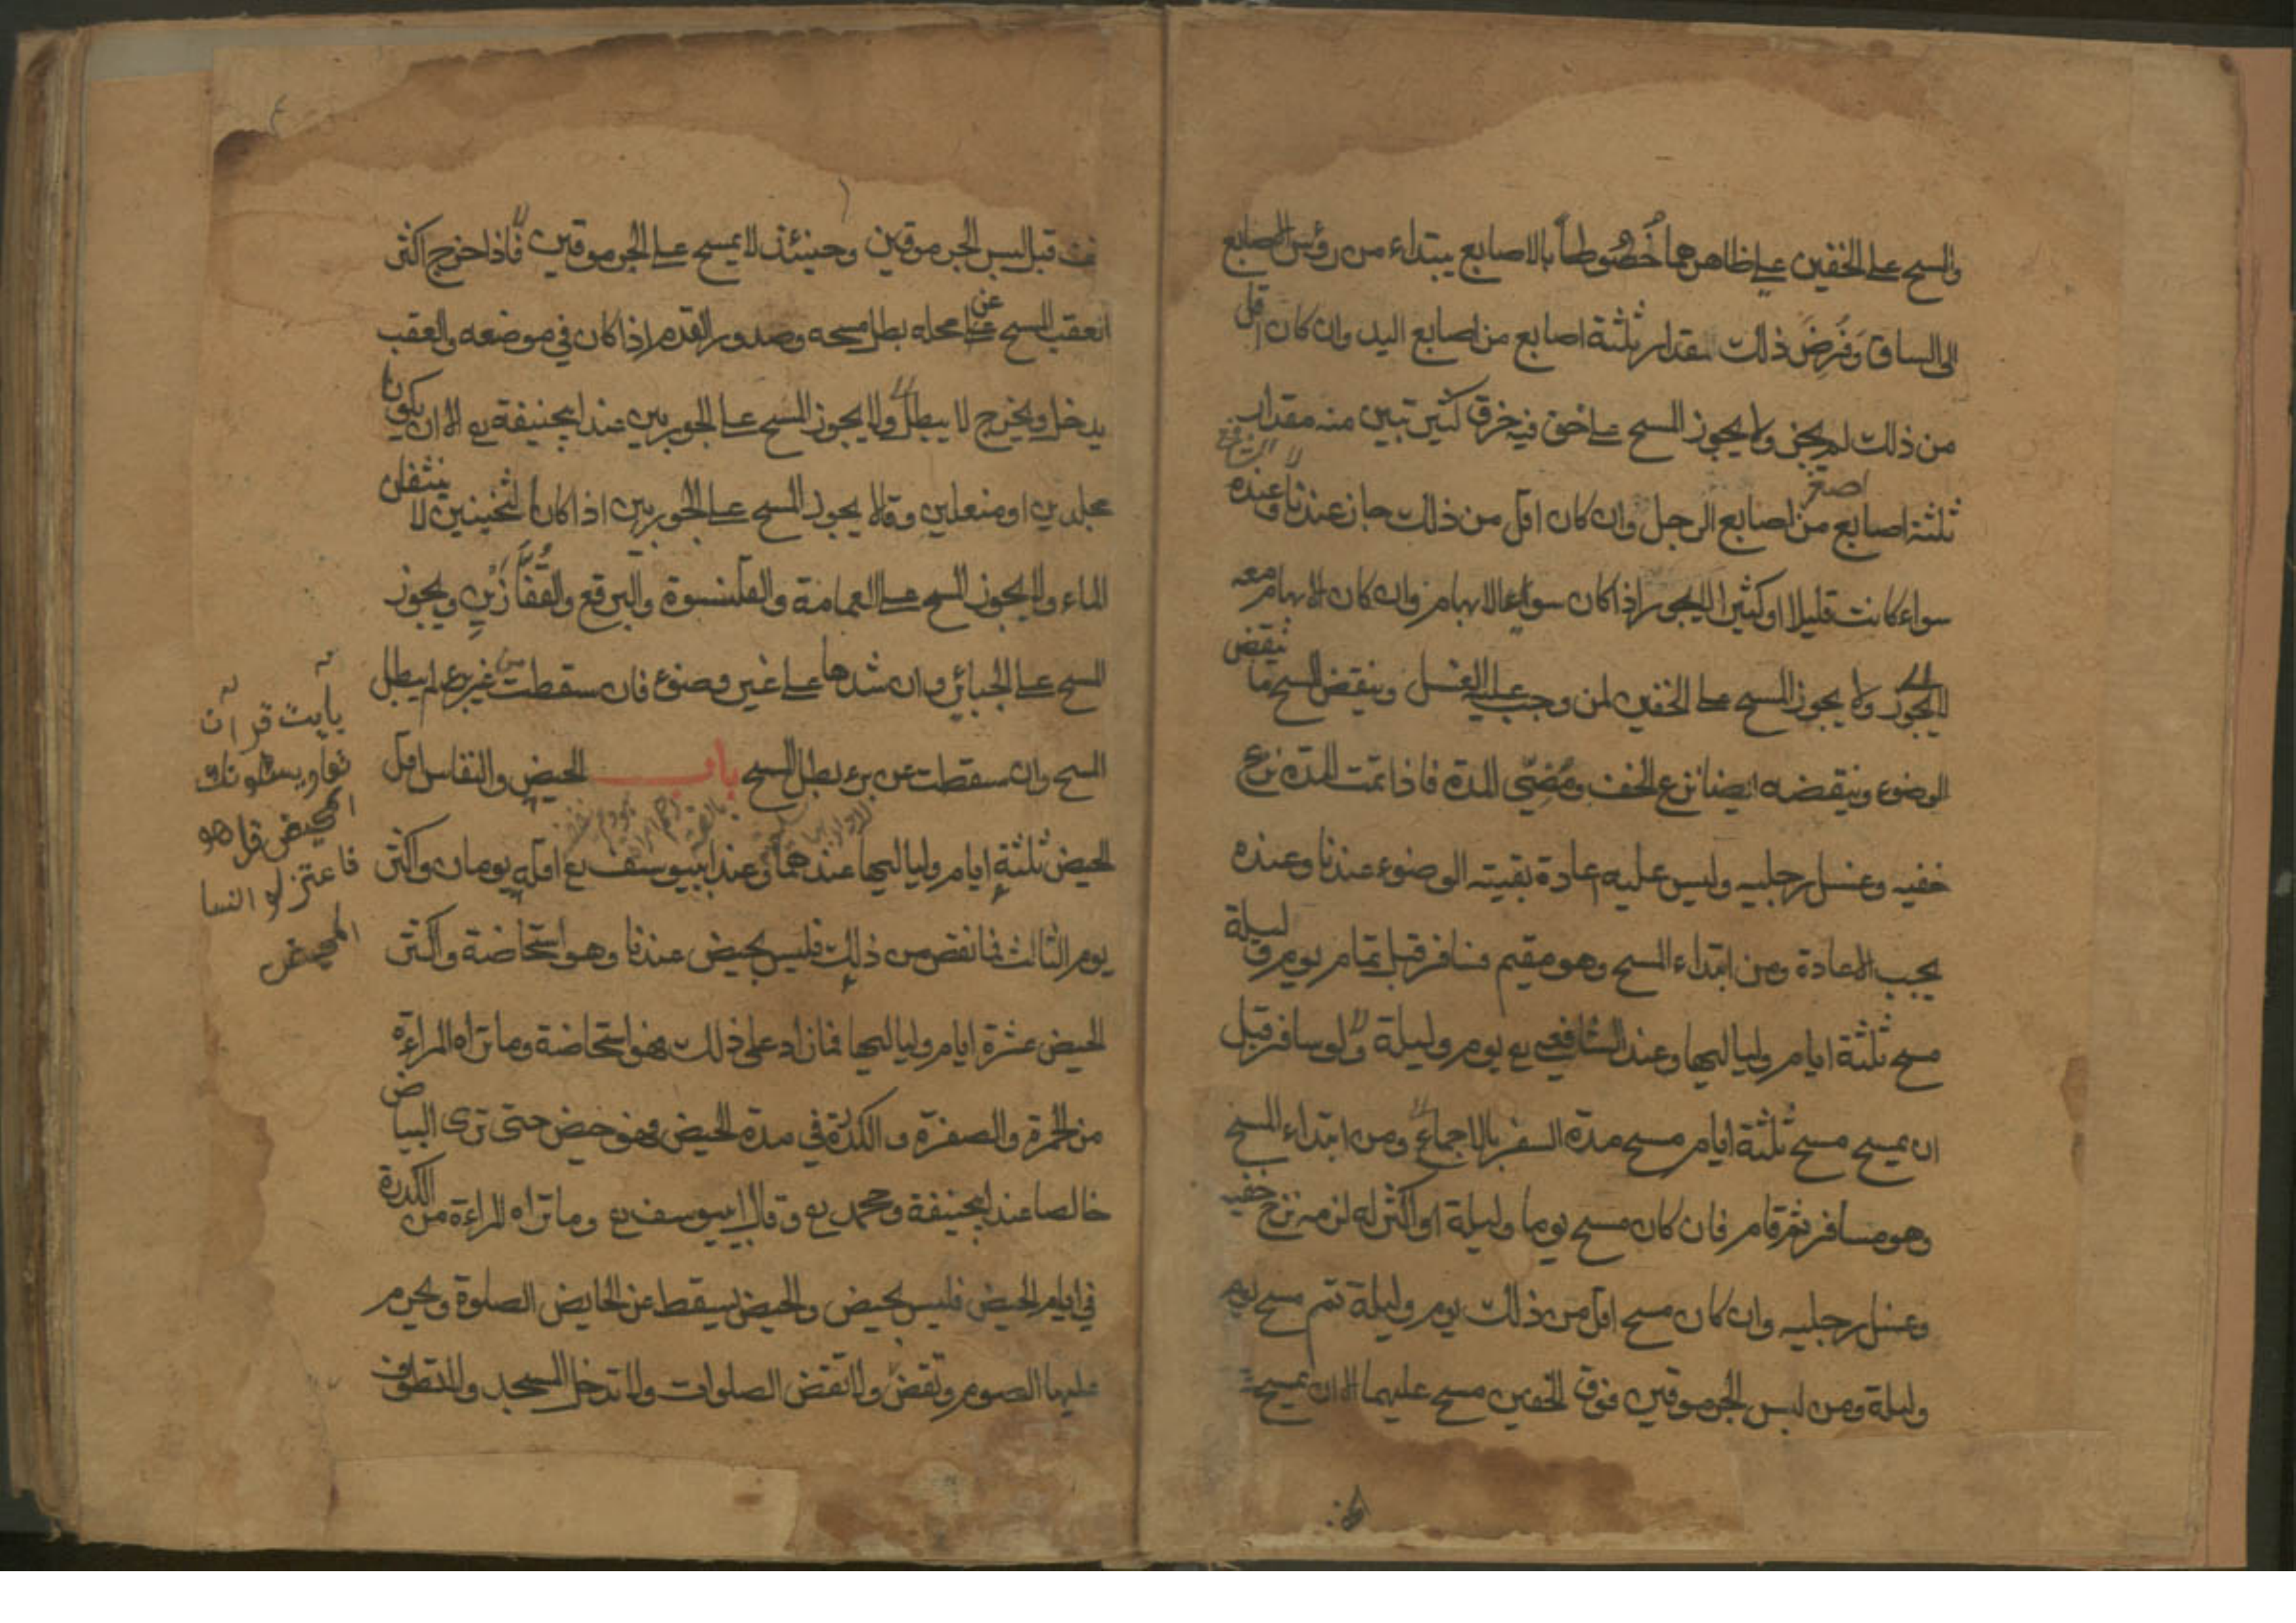 والمسح على الخفين على ظاهرهما خُطُوطاً بالاصابع يبتداء من رؤس الاصابع
الى الساق وفرض ذلك مقدار ثلثة اصابع من اصابع اليد وان كان اقل
من ذلك لم يجز ولا يجوز المسح على خف فيه خرق كثير تبين منه مقدار
ثلثة اصابع من اصغر اصابع الرجل وان كان اقل من ذلك جاز عندنا وعنده
سواء كانت قليلا او كثيرا لايجوز اذا كان سواى الابهام وان كان الابهام معه
لايجوز ولا يجوز المسح على الخفين لمن وجب عليه الغسل وينقض المسح ما ينقض
الوضوء وينقضه ايضا نزع الخف ومُضِّى المدة فاذا تمت المدة نزع
خفيه وغسل رجليه وليس عليه اعادة بقيته الوضوء عندنا وعنده
يجب الاعادة ومن ابتداء المسح وهو مقيم فسافر قبل تمام يوم وليلة
مسح ثلثة ايام ولياليها وعند الشافعي رع يوم وليلة ولو سافر قبل
ان يمسح مسح ثلثة ايام مسح مدة السفر بالاجماع ومن ابتداء المسح
وهو مسافر ثم قام فان كان مسح يوما وليلة او اكثر له لزمه نزع خفيه
وغسل رجليه وان كان مسح اقل من ذلك يوم وليلة تم مسح يوم
وليلة ومن لبس الجرموقين فوق الخفين مسح عليهما الا ان يمسح
قبل لبس الجرموقين وحينئذ لا يمسح على الجرموقين فاذا اخرج اكثر
العقب المسح عن محله بطل مسحه وصدور القدم اذا كان في موضعه والعقب
يدخل ويخرج لا يبطل ولا يجوز المسح على الجوربين عند ابيحنيفة رع الا ان يكونا
مجلدين او منعلين وقالا يجوز المسح على الجوربين اذا كانا ثخينين لا ينشفان
الماء ولا يجوز المسح على العمامة والقلنسوة والبرقع والقُفَّازَيْنِ ويجوز
المسح على الجبائر وان شدها على غير وضوء فان سقطت من غير برء لم يبطل
المسح وان سقطت عن برء بطل المسح باب الحيض والنفاس اقل
الحيض ثلثة ايام ولياليها عندهما وعند ابييوسف رع اقله يومان واكثر
يوم الثالث فما نقص من ذلك فليس بحيض عندنا وهو استحاضة واكثر
الحيض عشرة ايام ولياليها فما زاد على ذلك فهو استحاضة وما تراه المراءة
من الحمرة والصفرة والكدرة في مدة الحيض فهو حيض حتى ترى البياض
خالصا عند ابيحنيفة ومحمد رع وقال ابييوسف رع وما تراه المراءة من الكدرة
في ايام الحيض فليس بحيض والحيض يسقط عن الحايض الصلوة ويحرم
عليها الصوم وتقض ولا تقض الصلوات ولا تدخل المسجد ولا تطوف
يايت قران
يسئلونك
المحيض قل هو
فاعتزلو النسا
المحيض